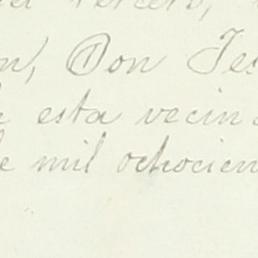 Tercero,
n, Don Jes
esta vecin
e mil ochocien